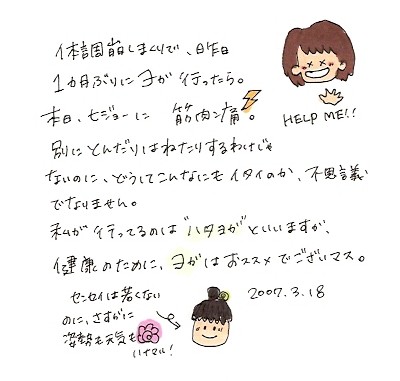 体調崩しまくりで、昨日
1カ月ぶりにヨガ行ったら。
本日、ヒジョーに 筋肉ツ痛。
HELP ME!!
別にとんだりはねたりするわけじゃ
ないのに、どうしてこんなにもイタイのか、不思議
でなりません。
私が行ってるのは"ハタヨガ"といいますが、
健康のために、ヨガはおススメでございマス。
センセイは若くない
のに、さすがに
姿勢も元気も
ハナマル!
2007.3.18